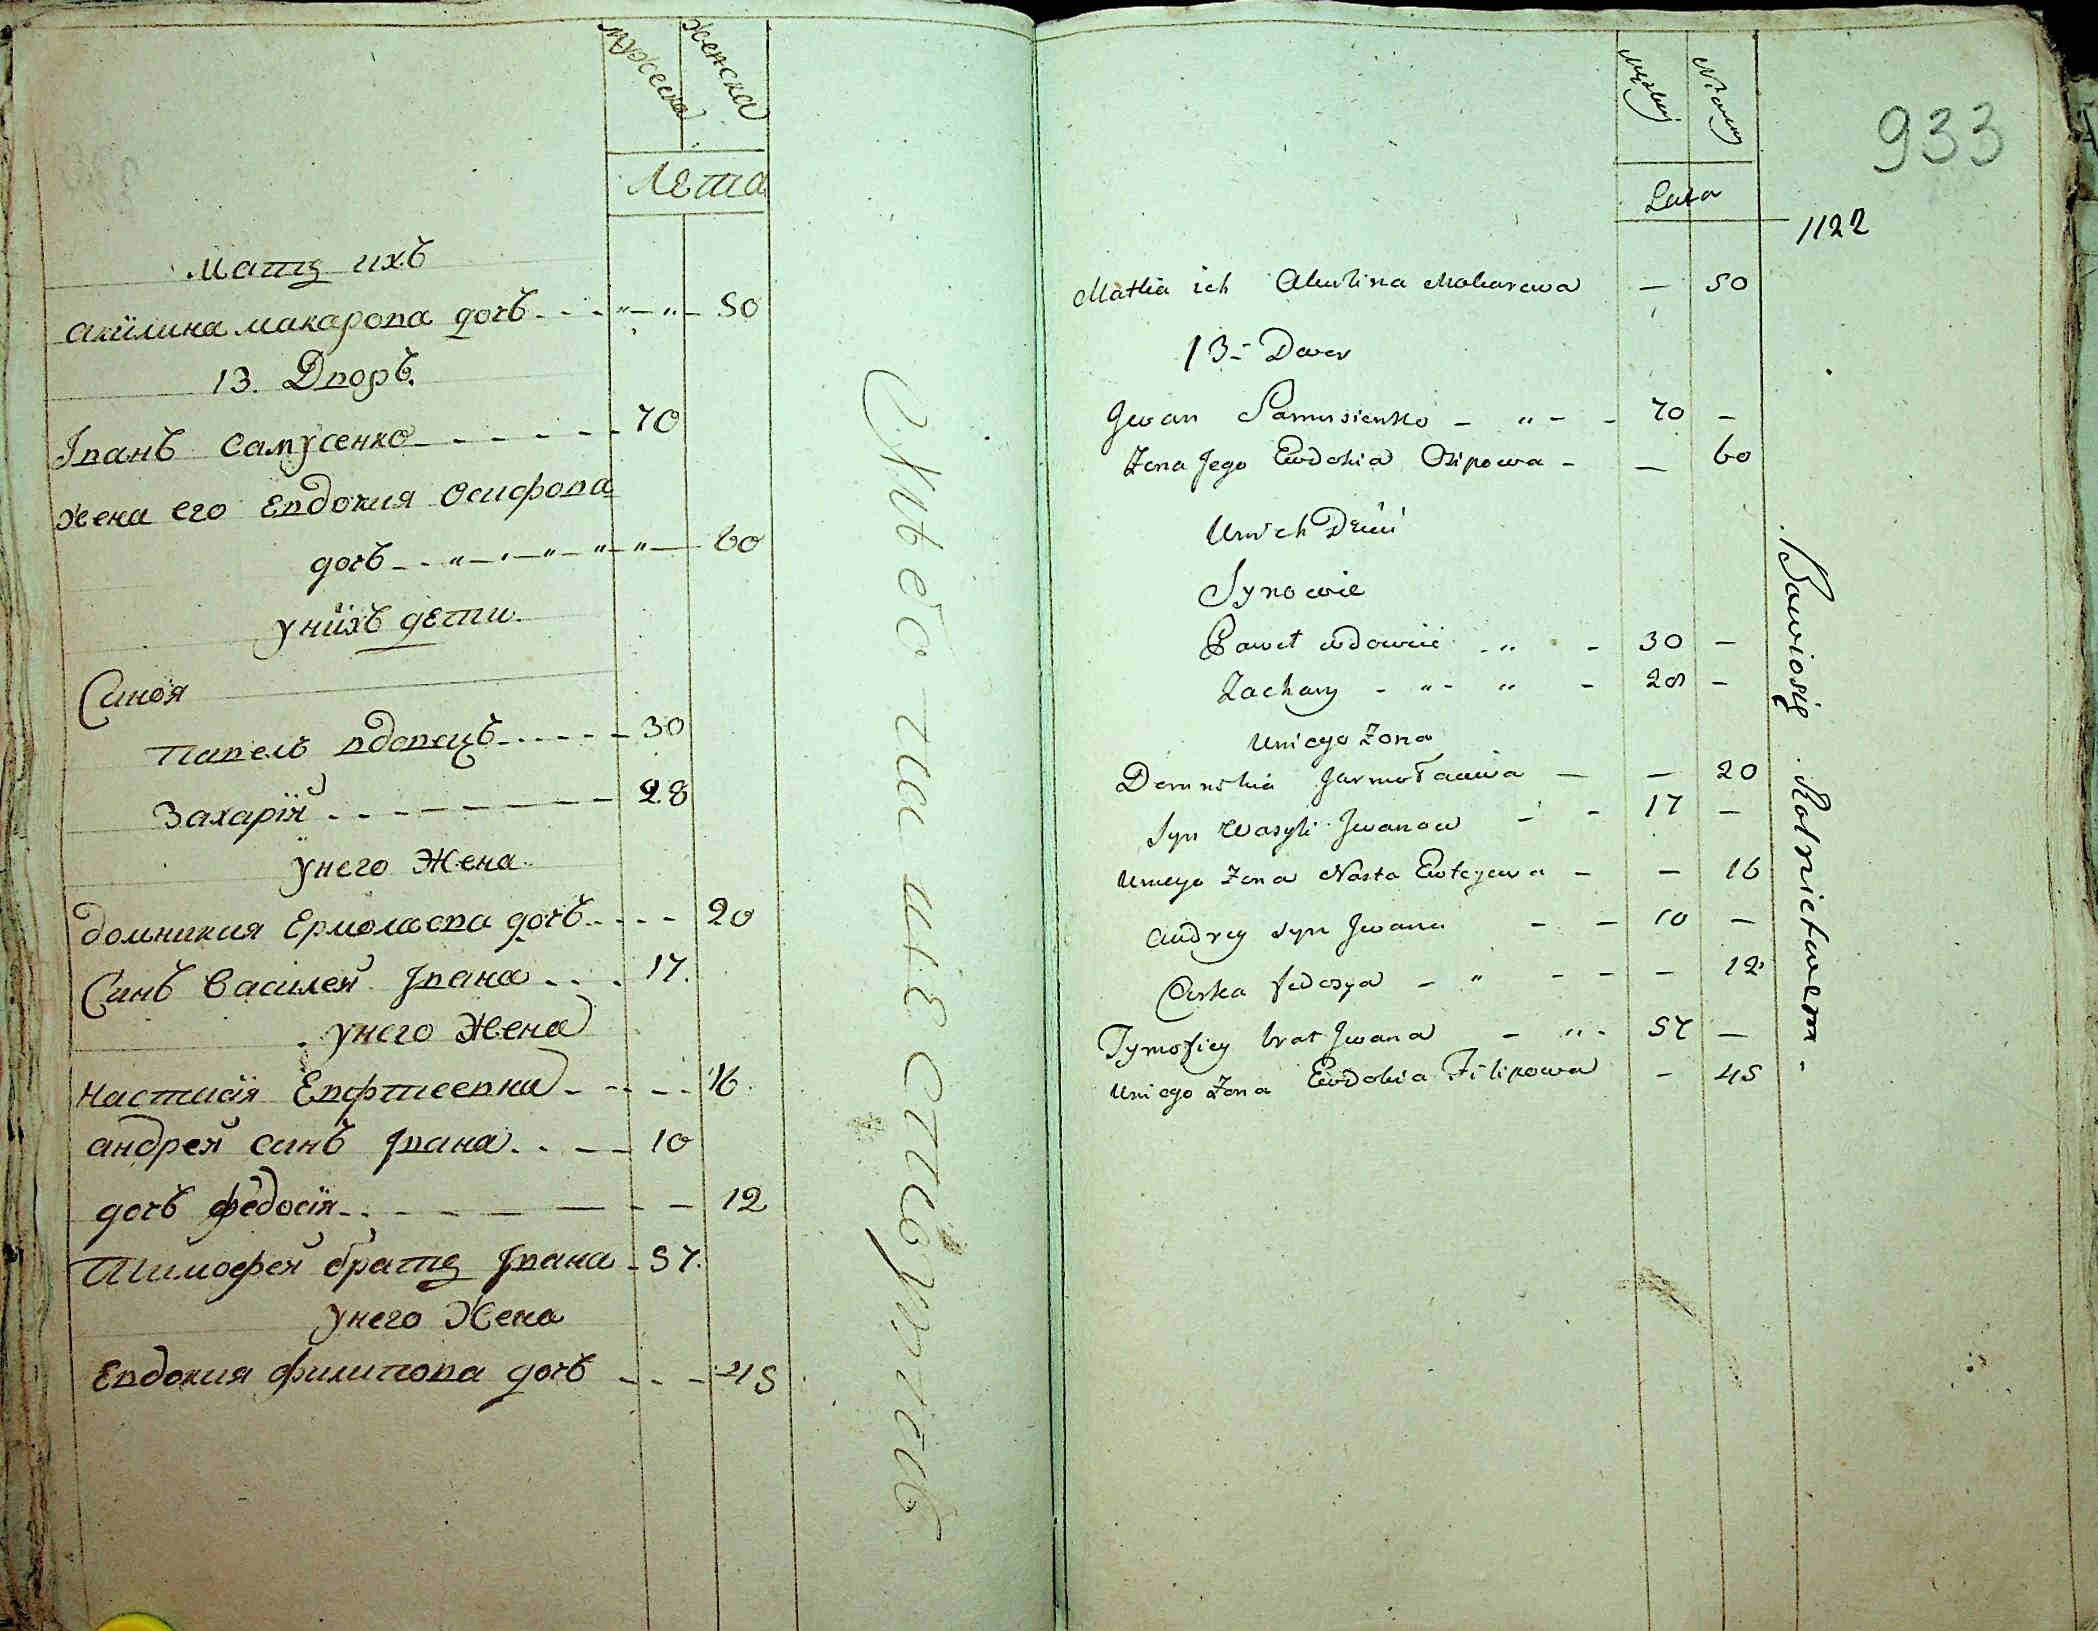 мужеска женска
Лета
Матъ ихъ
акилина макарова дочь 50
13. Дворъ.
Іванъ Самусенко 70
Жена его Евдокия Осифова
дочь 60
у нихъ дети.
Синоя
Павелъ вдовецъ 30
Захарій 28
у него Жена
домникия Ермолаева дочь 20
Синъ Василей Івана 17.
у него Жена
Настасія Евфтеевна 16.
андрей синъ Івана 10
дочь федосія 12
Тимофей братъ Івана 57.
у него Жена
Евдокия филипова дочь 45
933
Lata
1122
Matka ich Akulina Makarowa — 50
13 - Dwor
Jwan Samusienko - " - - 70 -
Zona Jego Ewdokia Osipowa - — 60
Unich Dzieci
Synowie
Paweł wdowiec - " - 30 -
Zachary - " - " - 28 -
Uniego Zona
Domnikia Jarmołaiewa — — 20
Syn Wasyli Jwanow - - 17 -
Uniego Zona Nasta Ewtejewa - — 16
Andrey syn Jwana - - 10 —
Curka fedosya - " - - - 12
Tymofiey brat Jwana - " - 57 —
Uniego Zona Ewdokia Filipowa - 45
Bawiosię Rolnictwem -